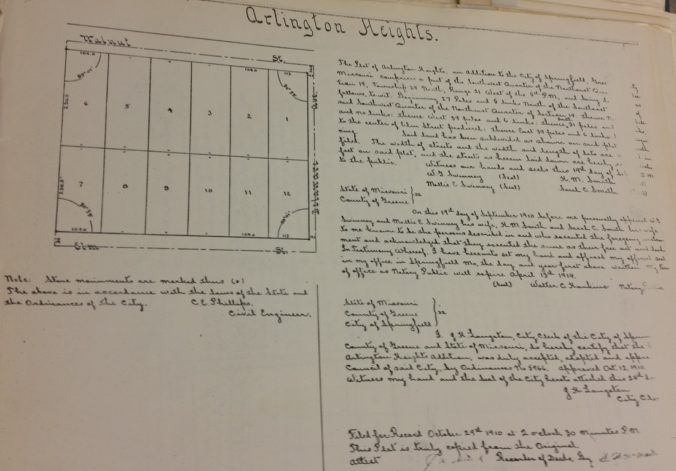 Arlington Heights.
Walnut St.
6 5 4 3 2 1
7 8 9 10 11 12
Delaware Ave
Elm St.
Note: Stone monuments are marked thus (o)
The above is in accordance with the laws of the State and
the Ordinances of the City. C.E. Phillips.
Civil Engineer.
The Plat of Arlington Heights, an Addition to the City of Springfield, Gree
Missouri comprises a part of the Southwest Quarter of the Northwest Qua
tion 19, Township 29 North, Range 21 West of the 5th P.M., and being d
follows, to wit: Beginning 27 Poles and 6 links North of the Southeast
and Southwest Quarter of the Northwest Quarter of Section 19, thence
and no links; thence West 39 poles and 6 links; thence 31 poles and
to the center of Elm Street produced; thence East 39 poles and 6 links
ning. Said land has been subdivided as shown on said plat
filed. The width of streets and the width and length of lots are
feet on said plat, and the streets as hereon laid down are hereby
to the public. Witness our hands and seals this 19th day of
W. J. Swinney (Seal) H. M. Smith
Mollie E. Swinney (Seal) Sarah C. Smith
State of Missouri } ss
County of Greene
On this 19th day of September 1910 before me personally appeared W.J.
Swinney and Mollie E. Swinney his wife, H.M. Smith and Sarah C. Smith his wife
to me known to be the persons described in and who executed the foregoing instru
ment and acknowledged that they executed the same as their free act and deed.
In Testimony Whereof, I have hereunto set my hand and affixed my official seal
in my office in Springfield Mo., the day and year first above written. My term
of office as Notary Public will expire April 13th 1914.
(Seal) Walter C. Notary
State of Missouri
County of Greene } ss
City of Springfield
I, J.R. Langston, City Clerk of the City of Sprin
County of Greene and State of Missouri, do hereby certify that the
Arlington Heights Addition, was duly accepted, adopted and appro
Council of said City, by Ordinance No 5966. Approved Oct. 12, 1910.
Witness my hand and the Seal of the City hereto attached this 28th
J R Langston
City Cle
Filed for Record October 29th 1910 at 2 oclock 30 minutes P.M.
This Plat is truly copied from the Original
attest Recorder of Deeds By